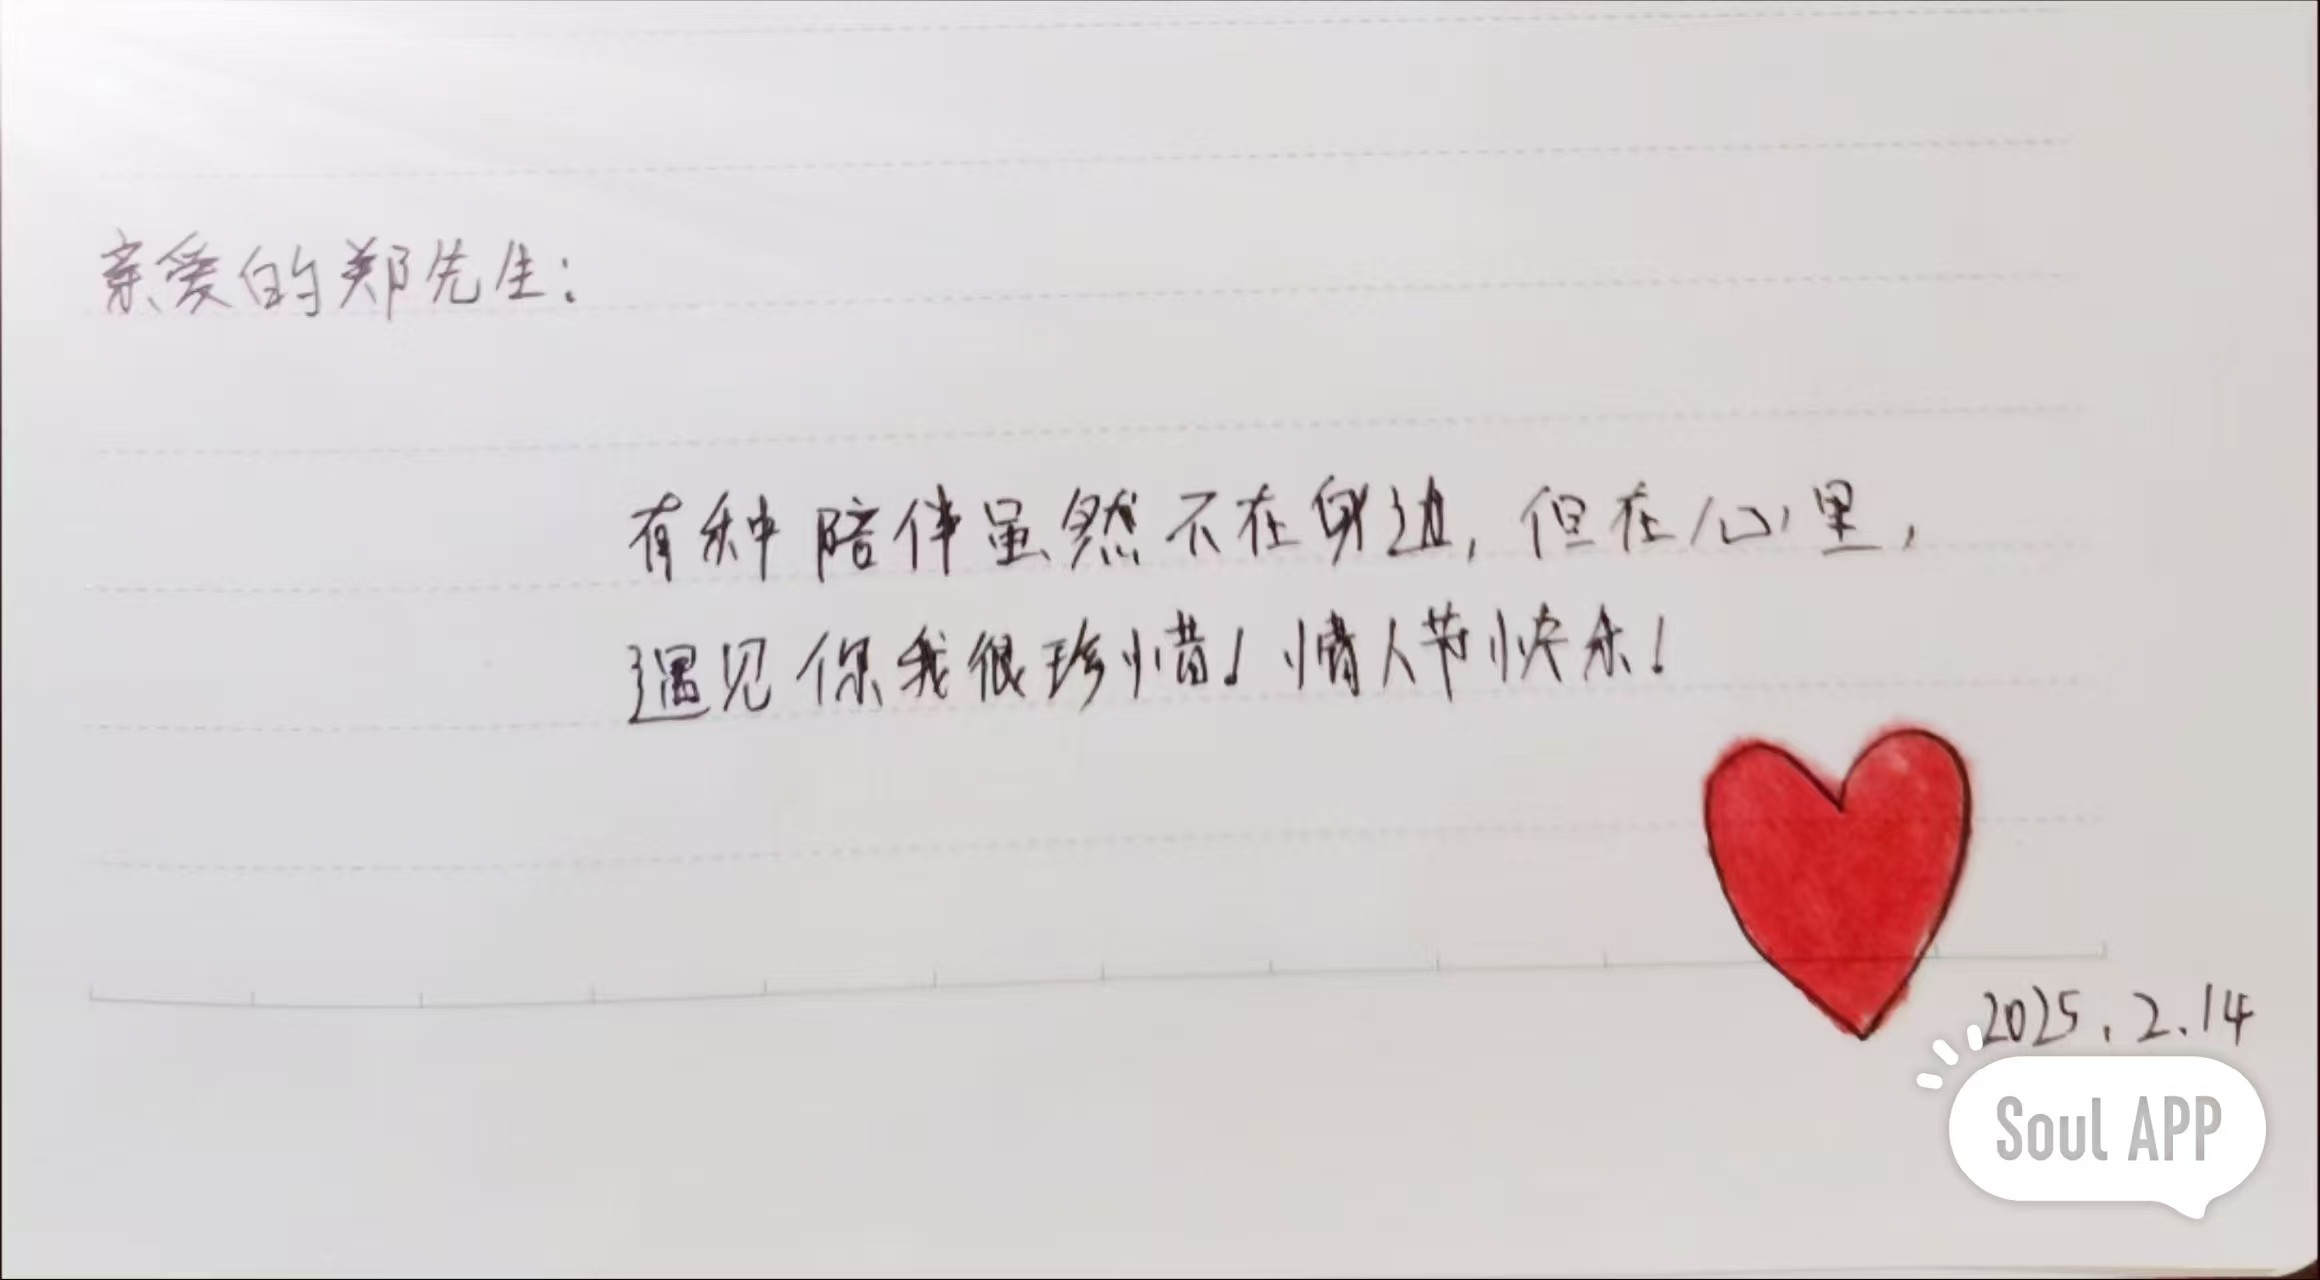 亲爱的郑先生：
有种陪伴虽然不在身边，但在心里，
遇见你我很珍惜！情人节快乐！
2025.2.14
Soul APP